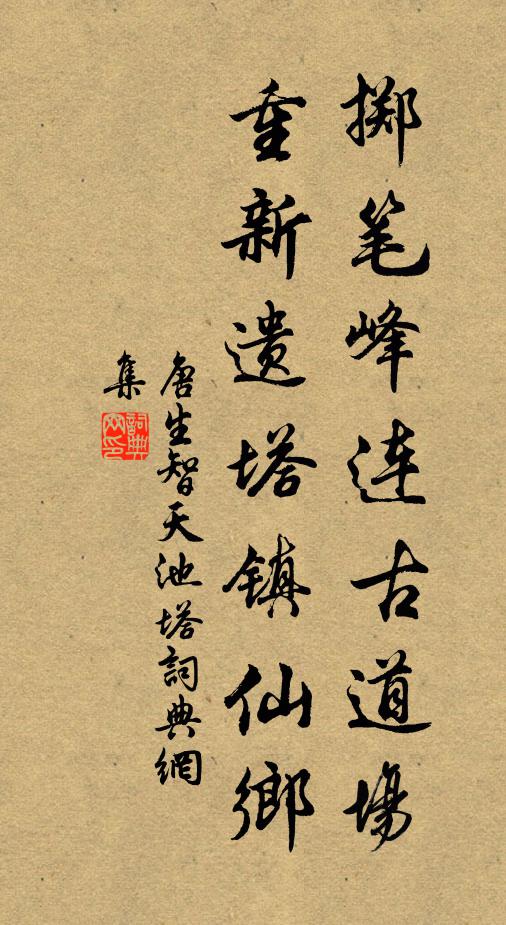 掷笔峰连古道場
重新遗塔镇仙鄉
唐生智天池塔詞典網
集
詞典网印